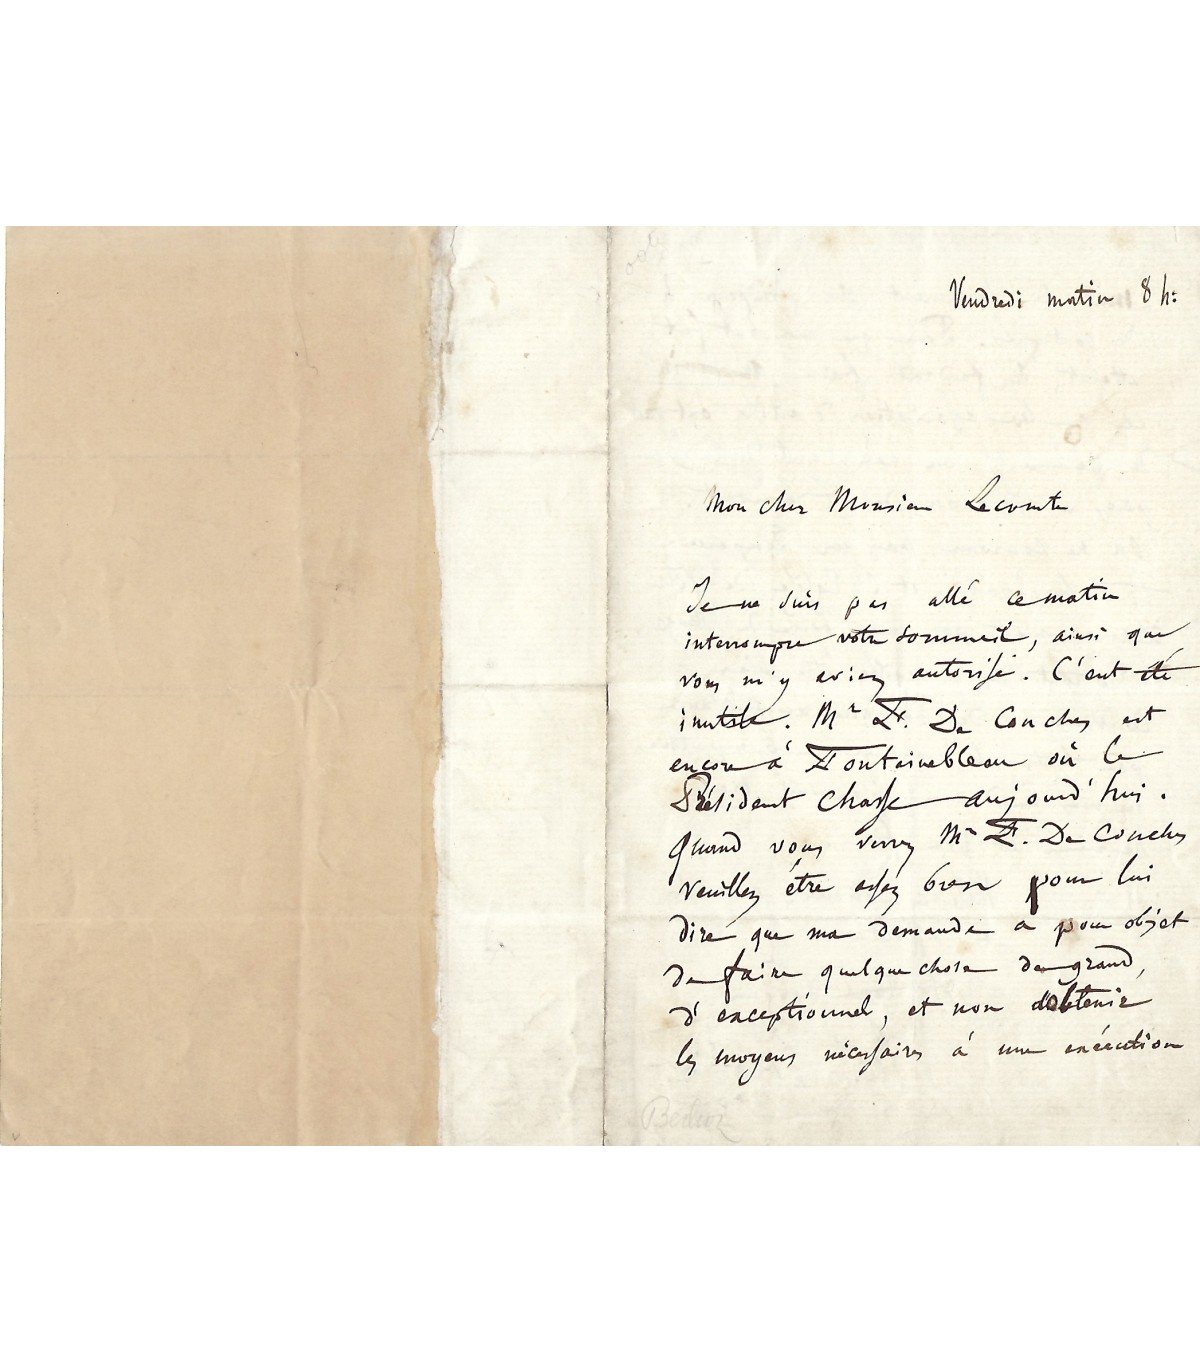 Vendredi matin 8 h:
Mon cher Monsieur Lecomte
Je ne suis pas allé ce matin
interrompre votre sommeil, ainsi que
vous m'y aviez autorisé. C'eut été
inutile. Mr F. De Conches est
encore à Fontainebleau où le
Président chasse aujourd'hui.
Quand vous verrez Mr F. De Conches
veuillez être assez bon pour lui
dire que ma demande a pour objet
de faire quelque chose de grand,
d'exceptionnel, et non d'obtenir
les moyens nécessaires à une exécution